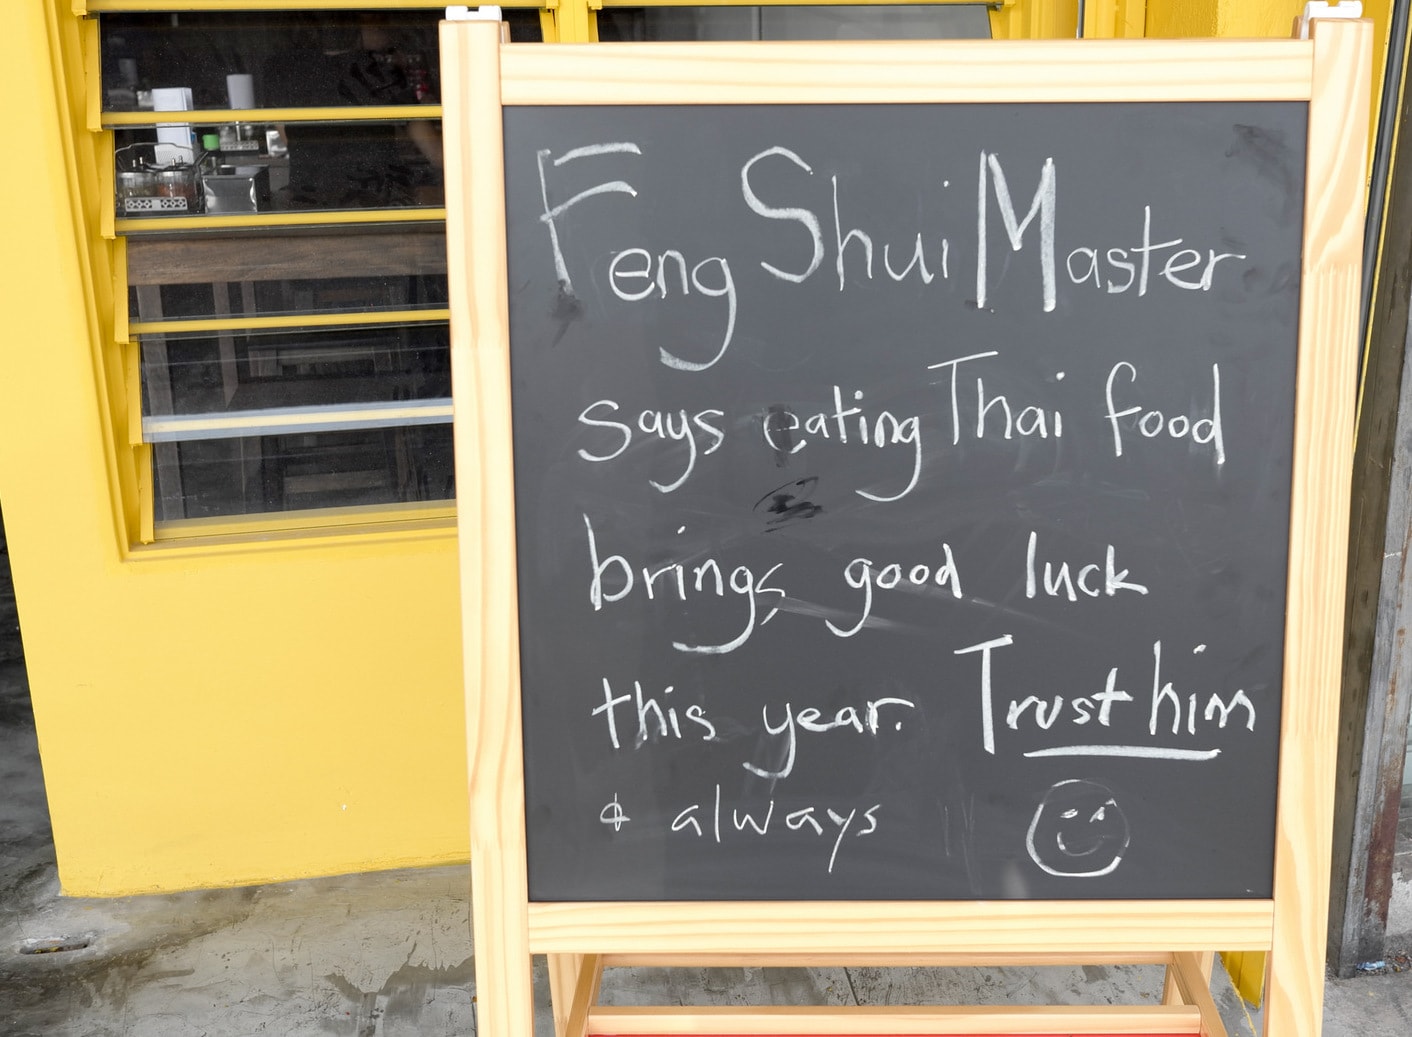 Feng Shui Master
says eating Thai food
brings good luck
this year. Trust him
& always